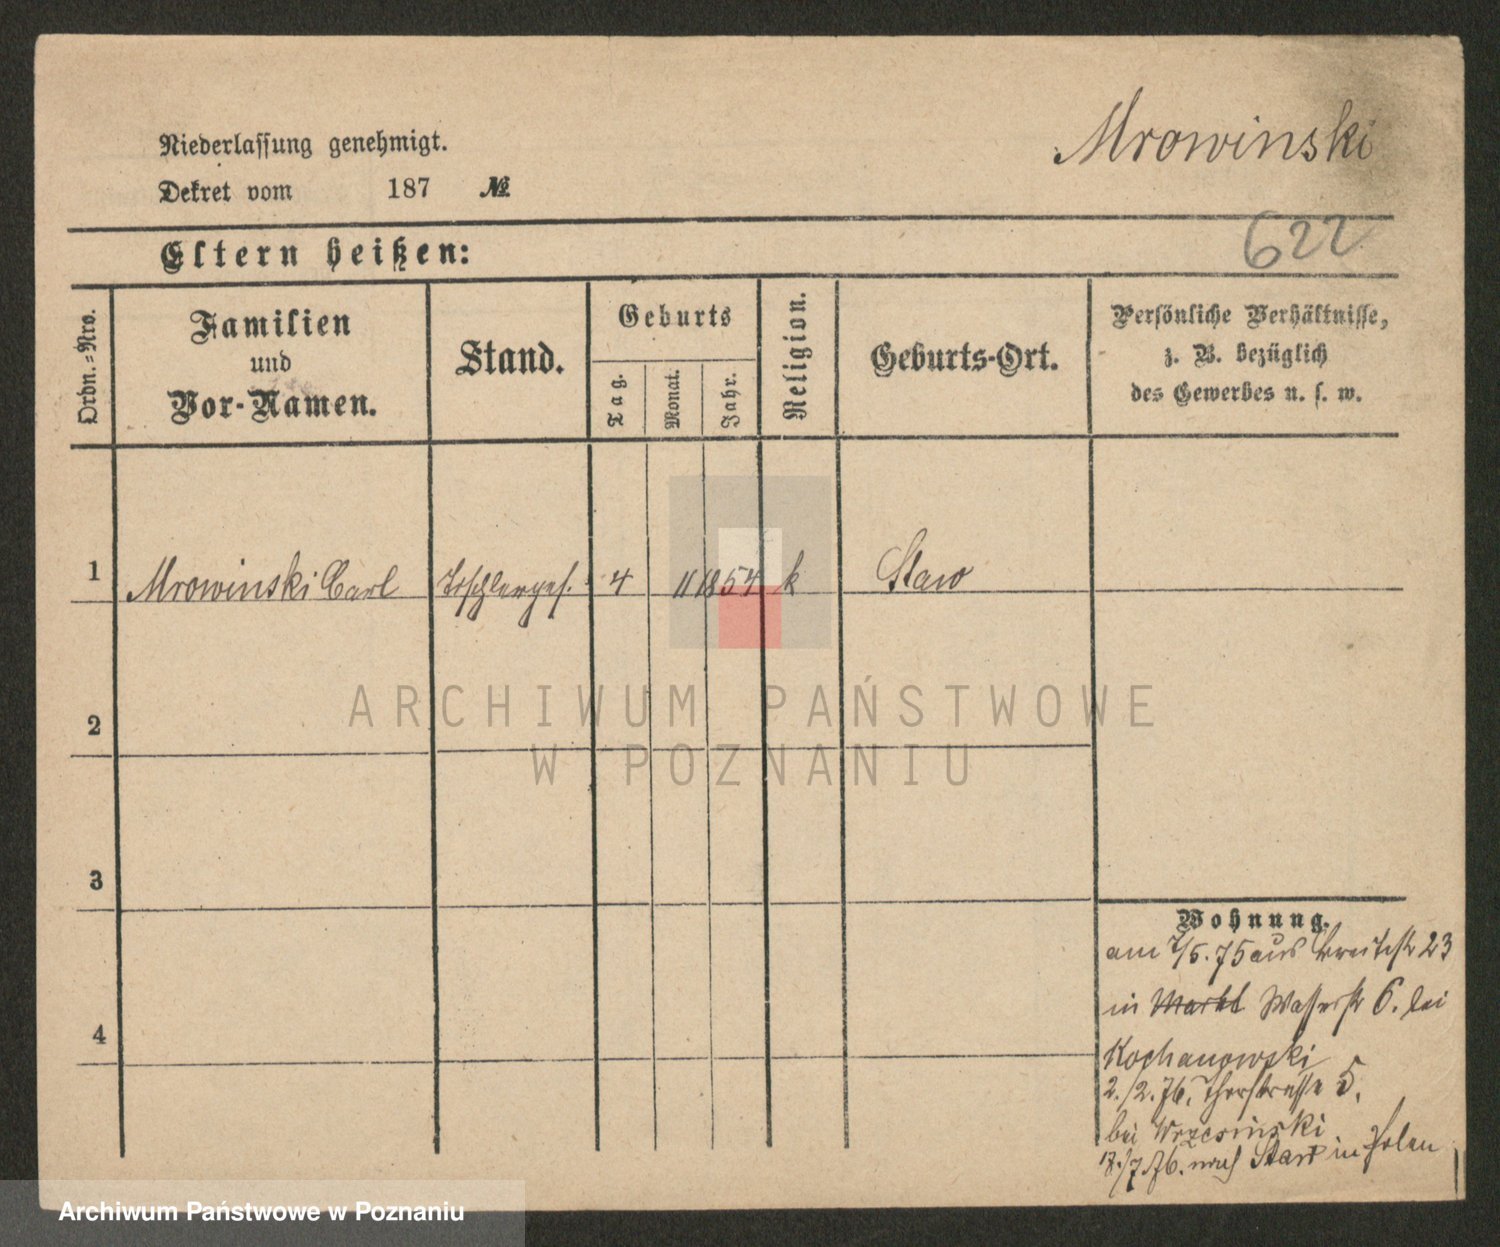 Mrowinski
Niederlassung genehmigt.
Dekret vom 187 №
622
Eltern heißen:
Ordn.=Nro.
Familien
und
Vor-Namen.
Stand.
Geburts
Tag.
Monat.
Jahr.
Religion.
Geburts-Ort.
Persönliche Verhältnisse,
z. B. bezüglich
des Gewerbes u. s. w.
1 Mrowinski Carl Tischlerges. 4 11 1854 k Staw
2
3
4
Wohnung.
am 7/5. 75 aus Breitestr 23
in Markt Wasserstr 6. bei
Kochanowski
2./2. 76. Thorstrasse 5.
bei Wrzesinski
17./7. 76. nach Staw in Polen
ARCHIWUM PAŃSTWOWE
W POZNANIU
Archiwum Państwowe w Poznaniu